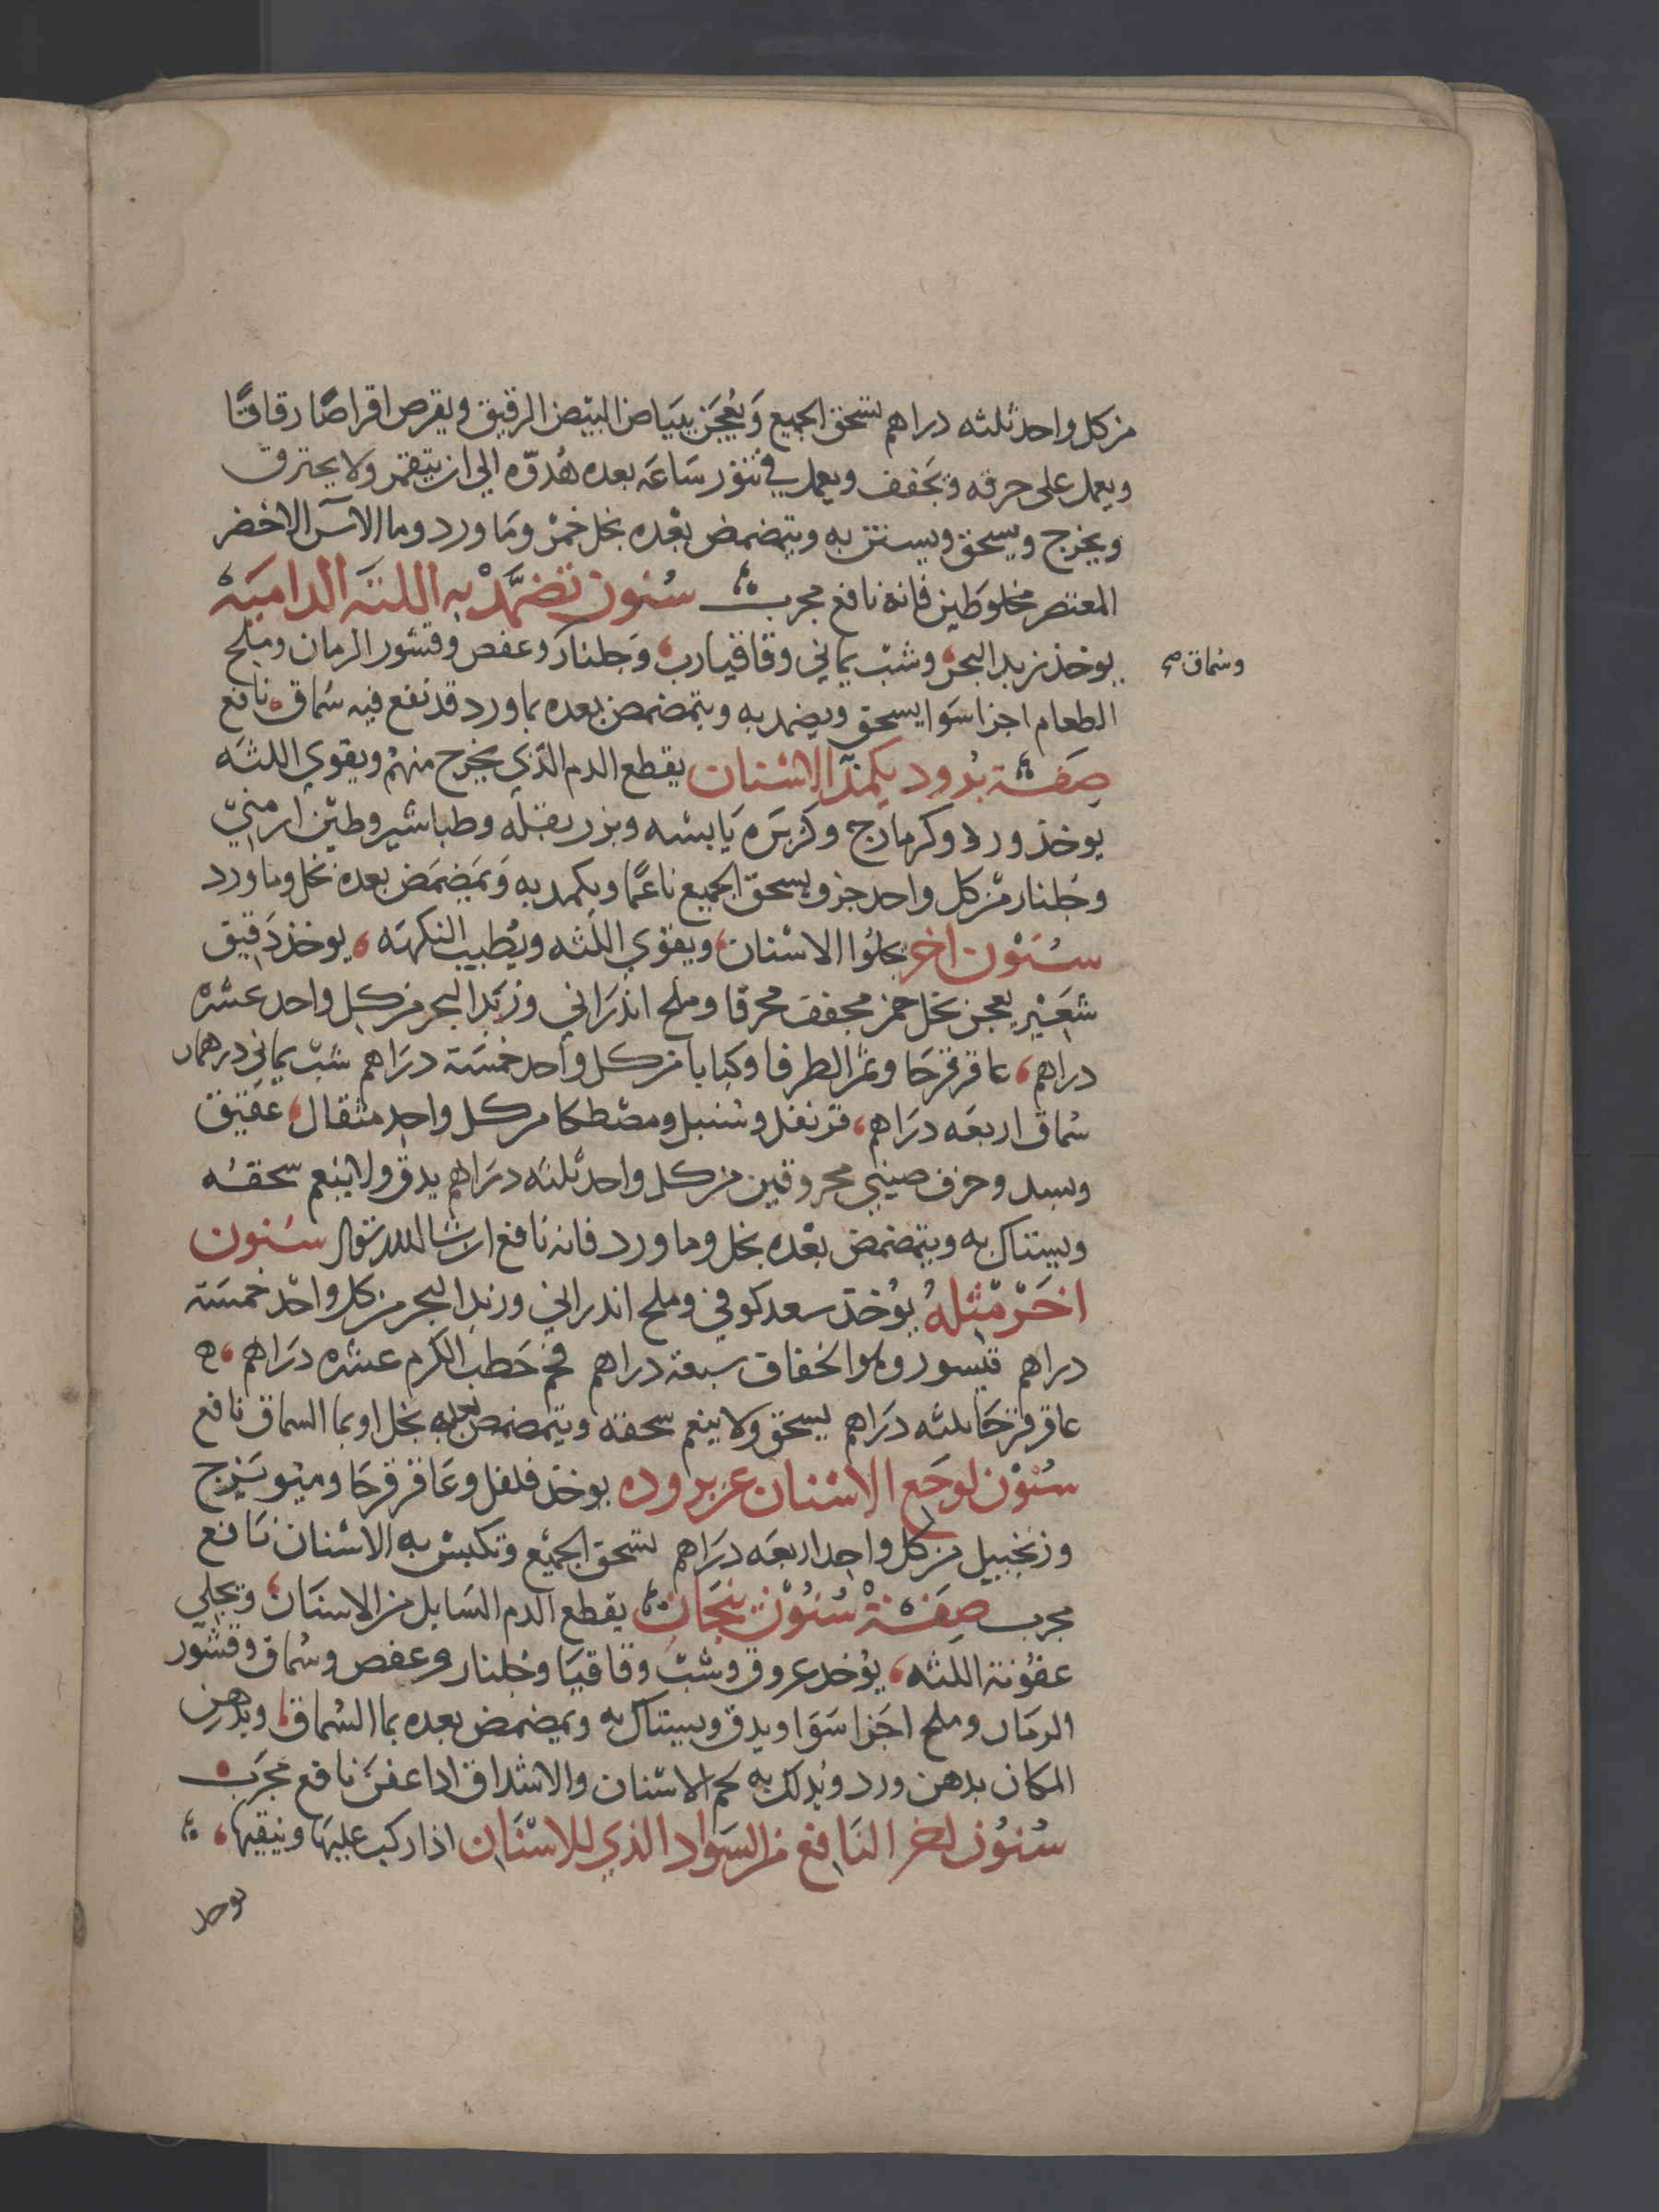 من كل واحد ثلثه دراهم يسحق الجميع وَيُعجَن ببَياض البيض الرقيق ويقرص اقراصًا رقاقًا
ويعمل على خرقه وَيجَفف ويعمل في تنور سَاعَه بعده هُدوّه الي ان يتقمر ولا يحترق
ويخرج ويسحق ويستن به ويتمضمض بعْده بخل خمْر وَما ورد وما الاس الاخضر
المعتصر مخلوطَين فانه نافع مجرب سُنون تضمَّدْ به اللثَه الداميَه
يوخذ زبد البحر وشبّ يماني وقاقيا رب وَجلنار وعفص وقشور الرمان وملح
وسماق صح
الطعام اجزا سَوا يسحق ويضمد به ويتمضمض بعده بماورد قد نقع فيه سُماق نافع
صَفة برود يكمد الاسْنان يقطع الدم الذي يخرج منهمْ ويقوي اللثَه
يوخذ ورد وكرمازج وكزبَره يَابسَه وبزر بقله وطباشير وطيْن ارمنيّ
وجلنار مْن كل واحد جزو يسحق الجميع ناعمًا ويكمد به وَيمَضمَض بعده بخل وماورد
سُنَوْن اخر يجلوُا الاسْنان ويقوي اللثه ويُطيب النكهَه يوخذ دَقيق
شعَيْر يعجن بخل خمر مجفف محرقا وملح اندَراني وزبَد البحر من كل واحد عشره
دراهم عاقرقرحَا وثمَر الطرفا وكبابا من كل واحد خمْسَة درَاهم شبّ يماني درهمان
سُماق اربعَه درَاهم قرنفل وسُنبل ومصْطكا من كل واحد مثقال عَقيق
وبسد وخزف صيني محروقين من كل واحد ثلثه درَاهم يدق ولا ينعم سحقهُ
ويستاك به ويتمضمض بعْده بخل وماورد فانه نافع ان شا الله تعالى سُنون
اخَرْ مْثلهُ يوُخذ سعد كوفي وملح اندراني وزبد البحر من كل واحْد خمسَة
دراهم قيسور الخفاف سبعة دراهم فحم حَطب الكرم عشره درَاهم ه
عاقرقرحَا ثلثه درَاهم يسحق ولا ينعم سحقه ويتمضمض بعده بخل او بما السماق نافع
سُنوْن لوجَع الاسْنان عن بروده يوخذ فلفل وعَاقرقرحَا وميوبَزج
وزنجبيل من كل واحد اربعَه درَاهم يسحق الجميْع وَتكبسْ به الاسْنان نافع
مجرب صِفة سُنُوْن يقطع الدم السَايل من الاسنَان ويجلي
عفوُنة اللثه يوُخذ عروق وشبّ وقاقيَا وجلنار وعفص وسُماق وقشور
الرمَان وملح اجَزا سَوَا ويدق ويستاك به ويمضمض بعده بما السُماق ويدهن
المكان بدهن ورد ويُدلك به لحم الاسْنان والاشداق اذا عفن نافع مجرَب
سُنوُن اخر النَافع من السَواد الذي للاسْنَان اذا ركب عليهَا وينقيها
يوخذ